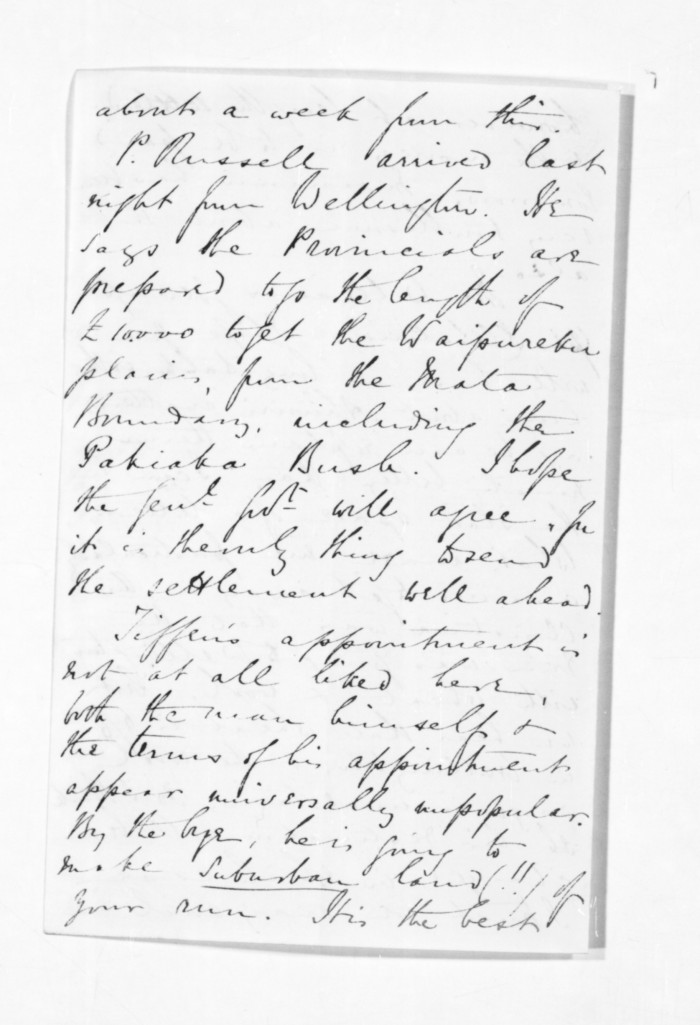 about a week from this.
P. Russell arrived last
night from Wellington. He
says the Provincials are
prepared to go the length of
£10000 to get the Waipureku
plains, from the Mata
Boundary, including the
Pakiaka Bush. I hope
the Genl. Govt. will agree, for
it is the only thing to send
the settlement well ahead.
Tiffen's appointment is
not at all liked here,
both the man himself &
the terms of his appointment
appear universally unpopular.
By the bye, he is going to
make suburban land (!!) of
your run. It is the best